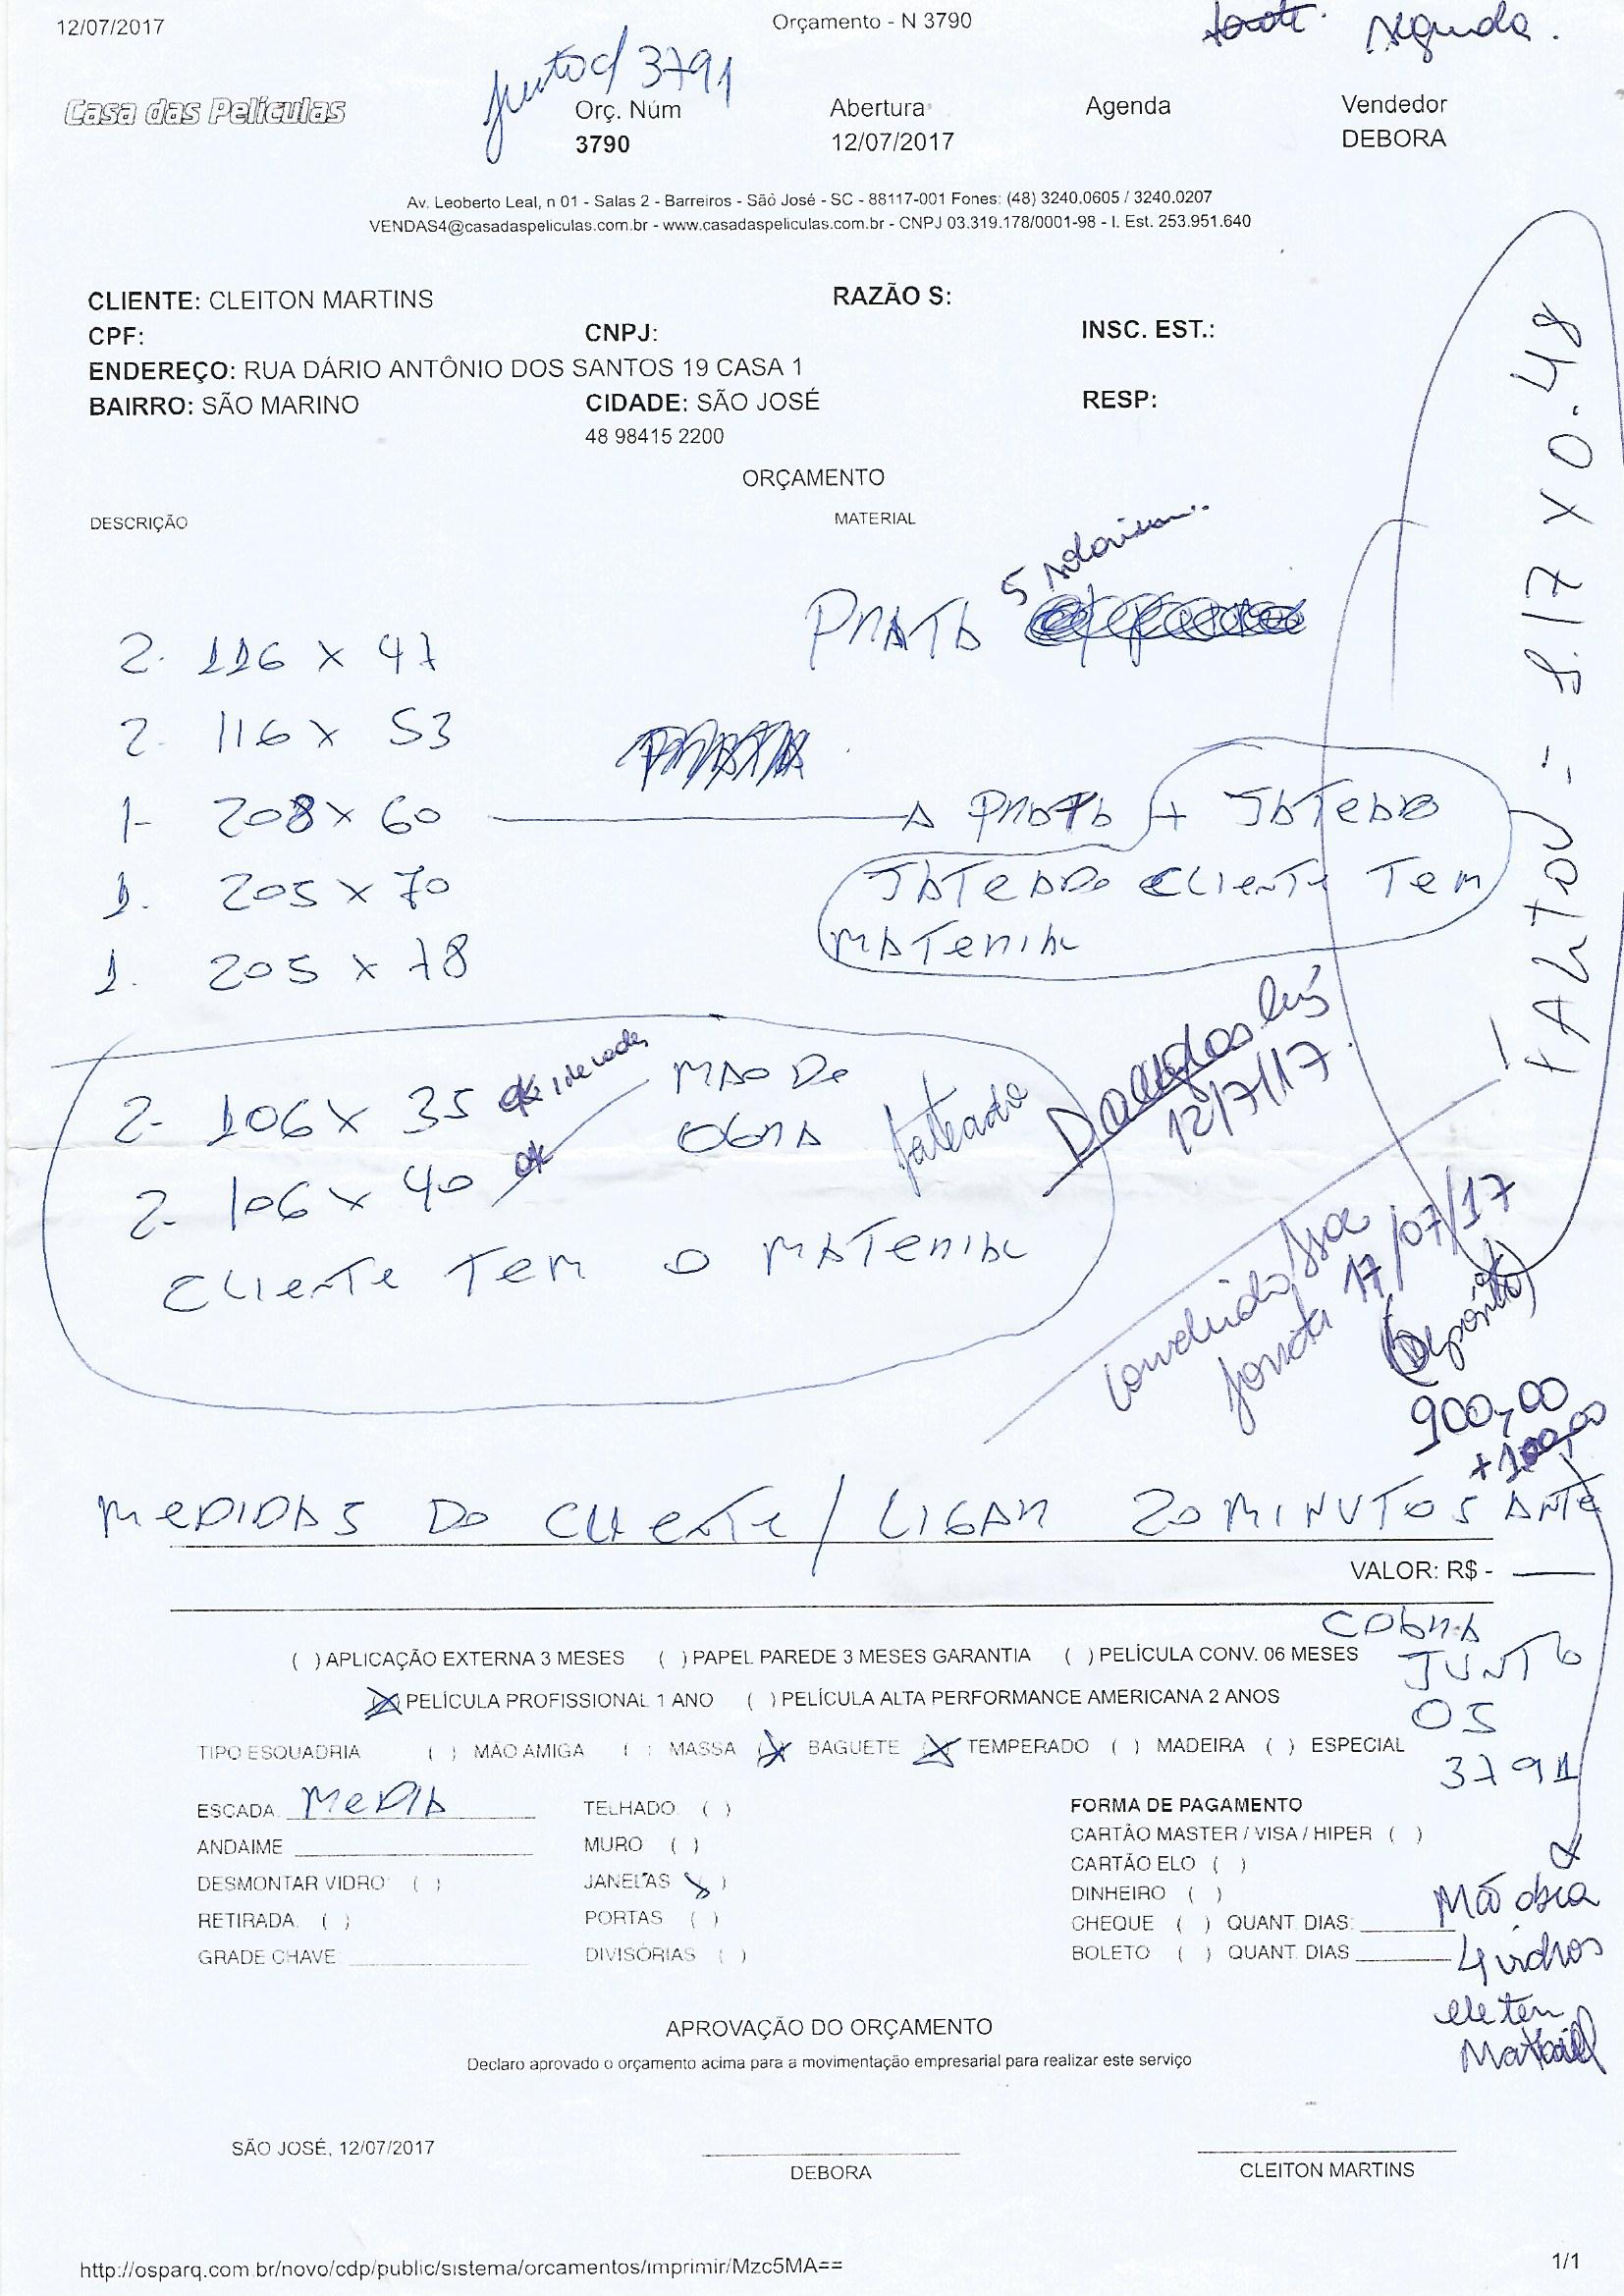 12/07/2017
Orçamento - N 3790
segunda.
junto c/ 3791
Casa das Películas
Orç. Núm
3790
Abertura
12/07/2017
Agenda
Vendedor
DEBORA
Av. Leoberto Leal, n 01 - Salas 2 - Barreiros - São José - SC - 88117-001 Fones: (48) 3240.0605 / 3240.0207
VENDAS4@casadaspeliculas.com.br - www.casadaspeliculas.com.br - CNPJ 03.319.178/0001-98 - I. Est. 253.951.640
CLIENTE: CLEITON MARTINS
RAZÃO S:
CPF:
CNPJ:
INSC. EST.:
ENDEREÇO: RUA DÁRIO ANTÔNIO DOS SANTOS 19 CASA 1
BAIRRO: SÃO MARINO
CIDADE: SÃO JOSÉ
RESP:
48 98415 2200
ORÇAMENTO
DESCRIÇÃO
MATERIAL
PRATA 5
2. 116 X 47
2. 116 X 53
1- 208 X 60
PRATA + JATEADO
1. 205 X 70
JATEADO CLIENTE TEM
MATERIAL
1. 205 X 78
FALTOU = X 0.48
2- 106 X 35 ok 1 de cada
MAO DE
OBRA
jateado
2- 106 X 40 ok
CLIENTE TEM O MATERIAL
Douglas
12/7/17
Concluido
17/07/17
(Depósito)
900,00
+100,00
MEDIDAS DO CLIENTE / LIGAR 20 MINUTOS ANTE
VALOR: R$ -
COBRA
JUNTO
OS
3791
( ) APLICAÇÃO EXTERNA 3 MESES ( ) PAPEL PAREDE 3 MESES GARANTIA ( ) PELÍCULA CONV. 06 MESES
(X) PELÍCULA PROFISSIONAL 1 ANO ( ) PELÍCULA ALTA PERFORMANCE AMERICANA 2 ANOS
TIPO ESQUADRIA ( ) MÃO AMIGA ( ) MASSA (X) BAGUETE (X) TEMPERADO ( ) MADEIRA ( ) ESPECIAL
ESCADA MEDIA
TELHADO ( )
FORMA DE PAGAMENTO
ANDAIME
MURO ( )
CARTÃO MASTER / VISA / HIPER ( )
CARTÃO ELO ( )
DESMONTAR VIDRO ( )
JANELAS (X)
DINHEIRO ( )
RETIRADA ( )
PORTAS ( )
CHEQUE ( ) QUANT. DIAS:
GRADE CHAVE
DIVISÓRIAS ( )
BOLETO ( ) QUANT. DIAS
Mão obra
4 vidros
ele tem
Material
APROVAÇÃO DO ORÇAMENTO
Declaro aprovado o orçamento acima para a movimentação empresarial para realizar este serviço
SÃO JOSÉ, 12/07/2017
DEBORA
CLEITON MARTINS
http://osparq.com.br/novo/cdp/public/sistema/orcamentos/imprimir/Mzc5MA==
1/1